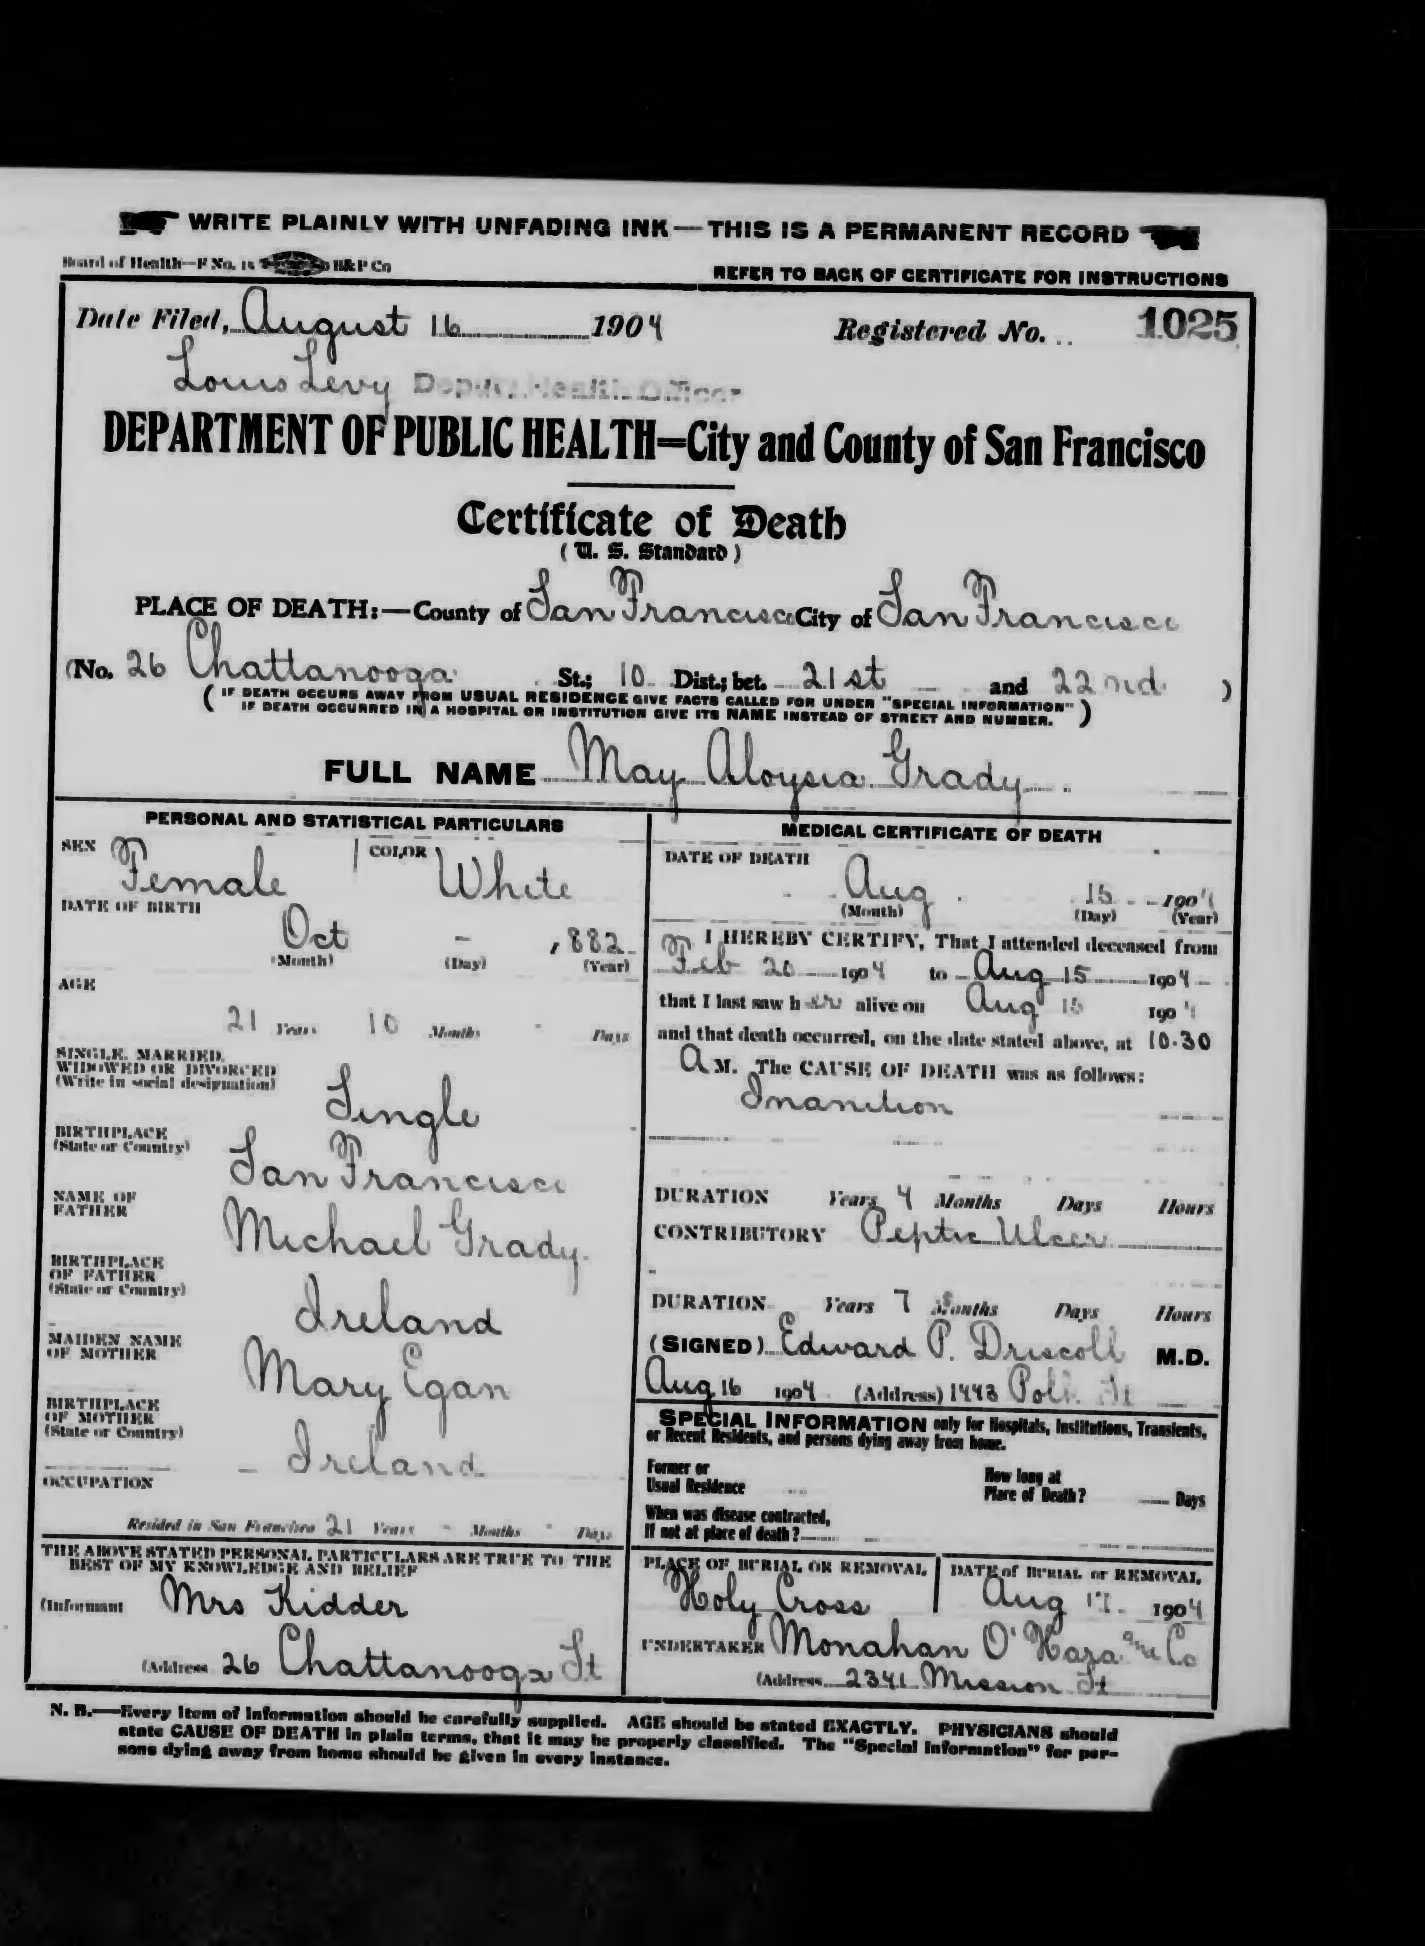 WRITE PLAINLY WITH UNFADING INK — THIS IS A PERMANENT RECORD
Board of Health—F No. 15 H&P Co
REFER TO BACK OF CERTIFICATE FOR INSTRUCTIONS
Date Filed, August 16 1904 Registered No. 1025
Louis Levy Deputy Health Officer
DEPARTMENT OF PUBLIC HEALTH=City and County of San Francisco
Certificate of Death
(U. S. Standard)
PLACE OF DEATH:—County of San Francisco City of San Francisco
(No. 26 Chattanooga St.; 10 Dist.; bet. 21st and 22nd )
( IF DEATH OCCURS AWAY FROM USUAL RESIDENCE GIVE FACTS CALLED FOR UNDER "SPECIAL INFORMATION"
IF DEATH OCCURRED IN A HOSPITAL OR INSTITUTION GIVE ITS NAME INSTEAD OF STREET AND NUMBER. )
FULL NAME May Aloysia Grady
PERSONAL AND STATISTICAL PARTICULARS
SEX Female COLOR White
DATE OF BIRTH
Oct - , 882
(Month) (Day) (Year)
AGE
21 Years 10 Months - Days
SINGLE, MARRIED,
WIDOWED OR DIVORCED
(Write in social designation)
Single
BIRTHPLACE
(State or Country)
San Francisco
NAME OF
FATHER
Michael Grady
BIRTHPLACE
OF FATHER
(State or Country)
Ireland
MAIDEN NAME
OF MOTHER
Mary Egan
BIRTHPLACE
OF MOTHER
(State or Country)
Ireland
OCCUPATION
Resided in San Francisco 21 Years - Months - Days
THE ABOVE STATED PERSONAL PARTICULARS ARE TRUE TO THE
BEST OF MY KNOWLEDGE AND BELIEF
(Informant Mrs Kidder
(Address 26 Chattanooga St
MEDICAL CERTIFICATE OF DEATH
DATE OF DEATH
Aug 15 1904
(Month) (Day) (Year)
I HEREBY CERTIFY, That I attended deceased from
Feb 20 1904 to Aug 15 1904
that I last saw her alive on Aug 15 1904
and that death occurred, on the date stated above, at 10.30
A M. The CAUSE OF DEATH was as follows:
Inanition
DURATION Years 4 Months Days Hours
CONTRIBUTORY Peptic Ulcer
DURATION Years 7 Months Days Hours
(SIGNED) Edward P. Driscoll M.D.
Aug 16 1904 (Address) 1443 Polk St
SPECIAL INFORMATION only for Hospitals, Institutions, Transients,
or Recent Residents, and persons dying away from home.
Former or
Usual Residence
How long at
Place of Death? Days
When was disease contracted,
If not at place of death?
PLACE OF BURIAL OR REMOVAL
Holy Cross
DATE of BURIAL or REMOVAL
Aug 17 1904
UNDERTAKER Monahan O'Hara and Co
(Address 2341 Mission St
N. B.—Every item of information should be carefully supplied. AGE should be stated EXACTLY. PHYSICIANS should
state CAUSE OF DEATH in plain terms, that it may be properly classified. The "Special Information" for per-
sons dying away from home should be given in every instance.